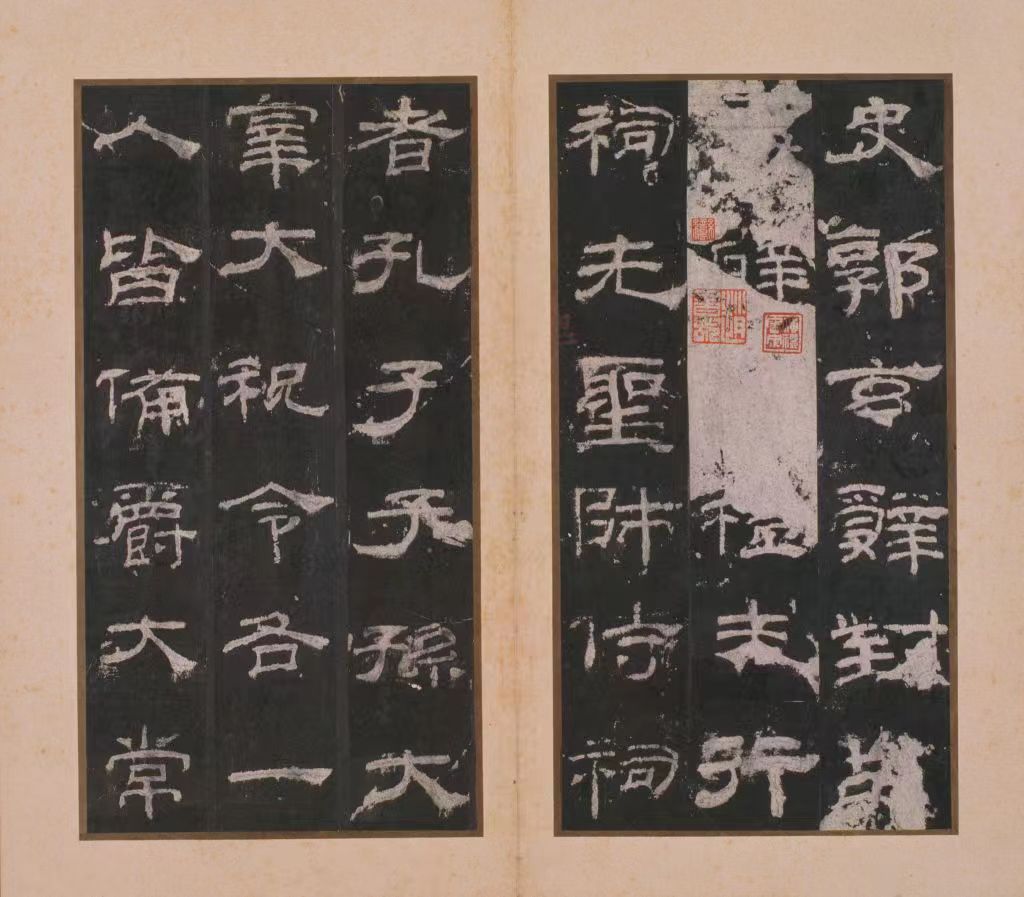 史郭玄辭對
辟未行
祠先聖師侍祠
者孔子子孫大
宰大祝令各一
人皆備爵大常